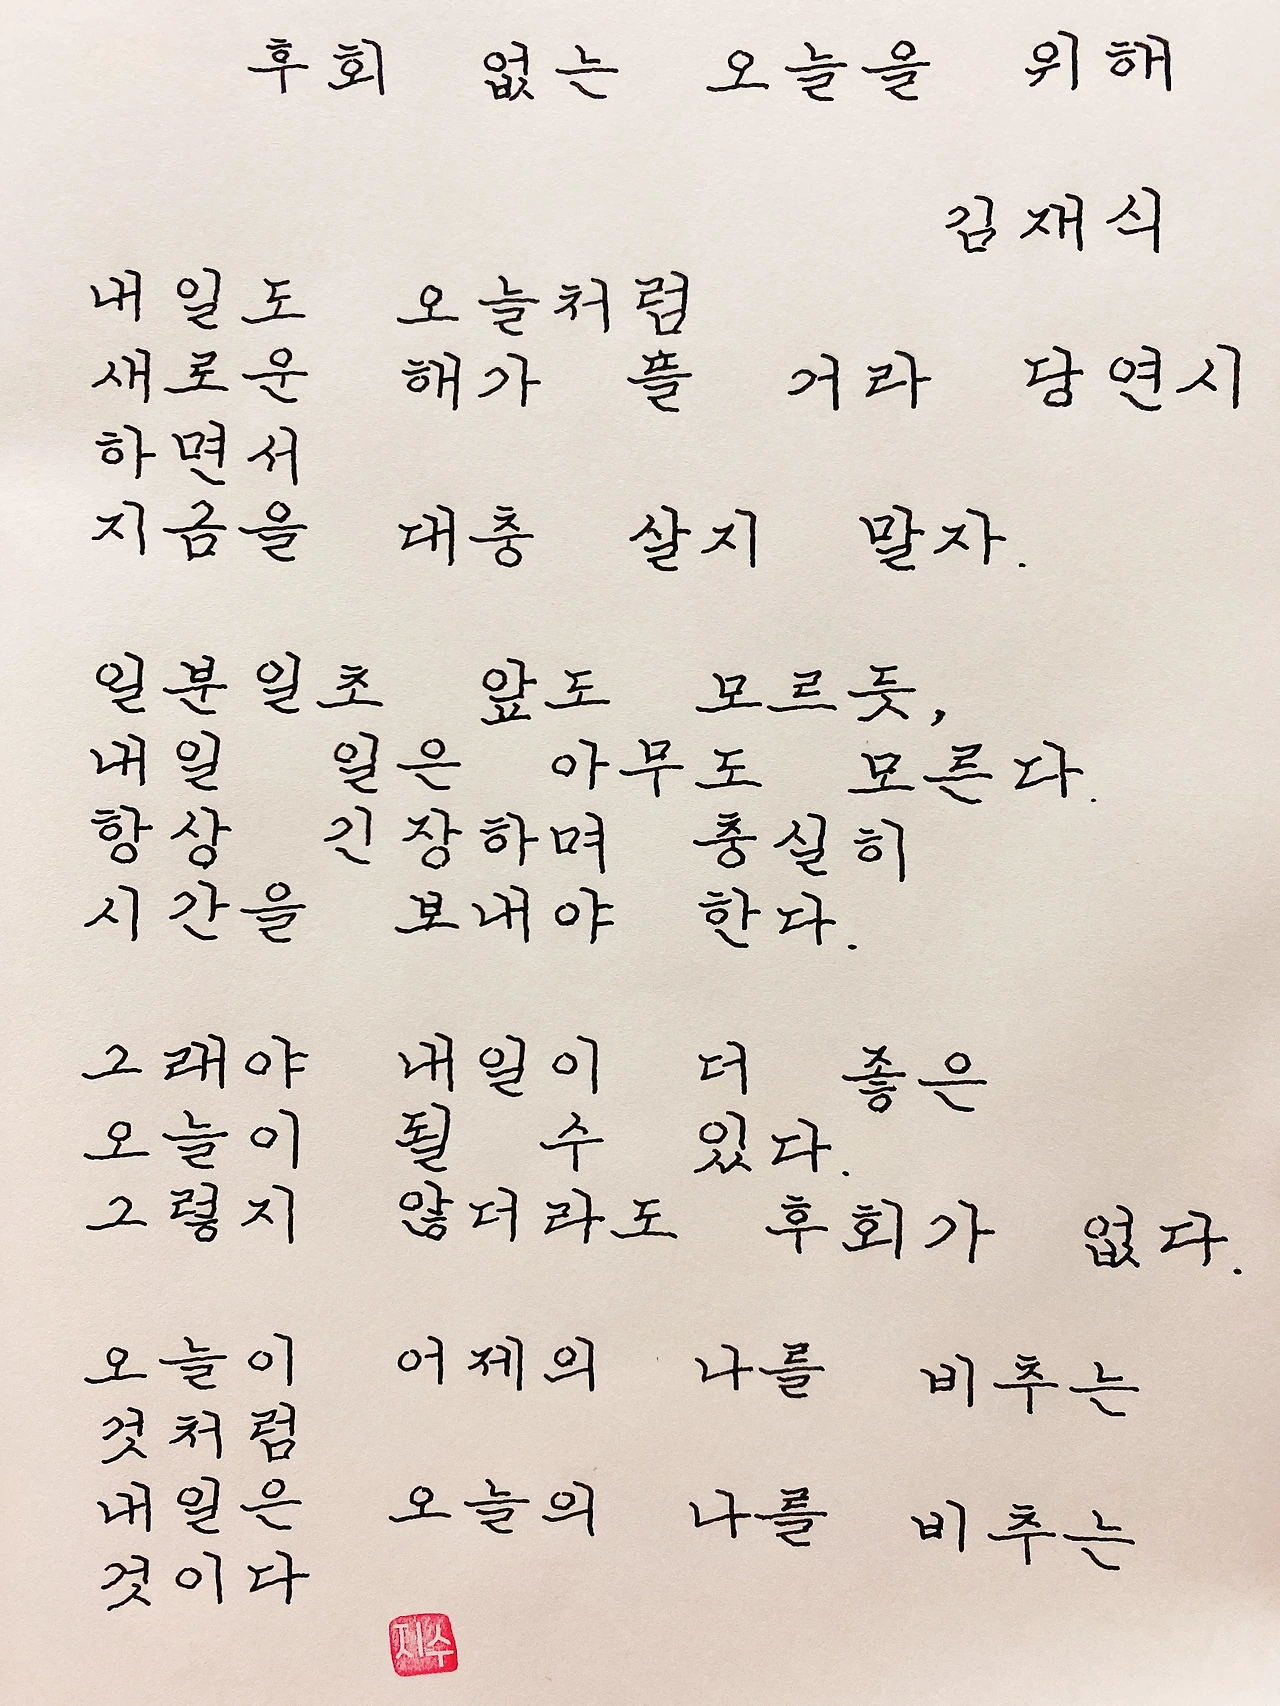 후회 없는 오늘을 위해
김재식
내일도 오늘처럼
새로운 해가 뜰 거라 당연시
하면서
지금을 대충 살지 말자.
일분일초 앞도 모르듯,
내일 일은 아무도 모른다.
항상 긴장하며 충실히
시간을 보내야 한다.
그래야 내일이 더 좋은
오늘이 될 수 있다.
그렇지 않더라도 후회가 없다.
오늘이 어제의 나를 비추는
것처럼
내일은 오늘의 나를 비추는
것이다
지수